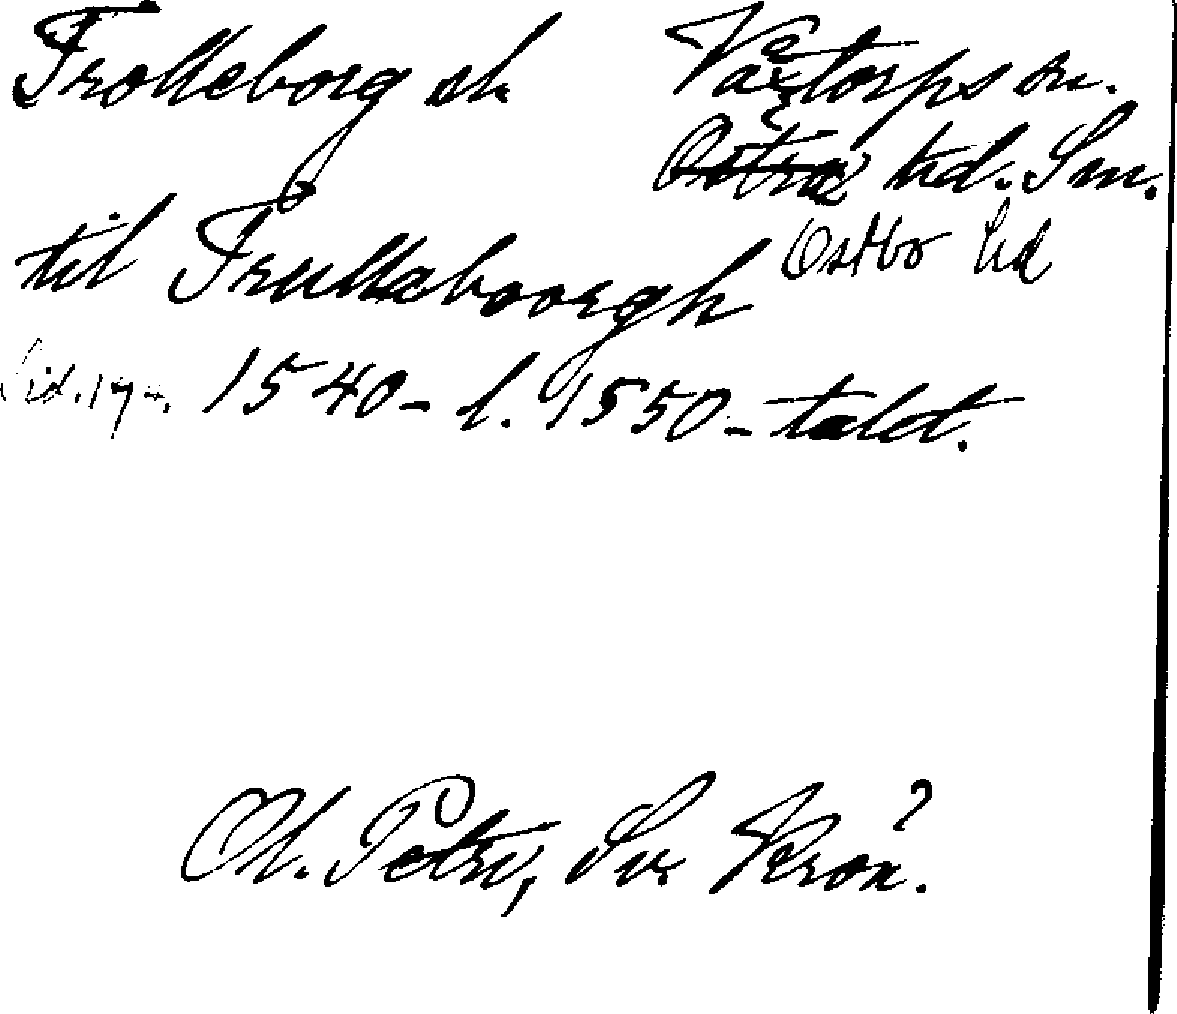 Trolleborg sl. Voxtorps sn.
Östra hd. Sm.
Östbo hd
til Trulleboorgh
Sid. 174. 1540- l. 1550-talet.
Ol. Petri, Sv. Krön.